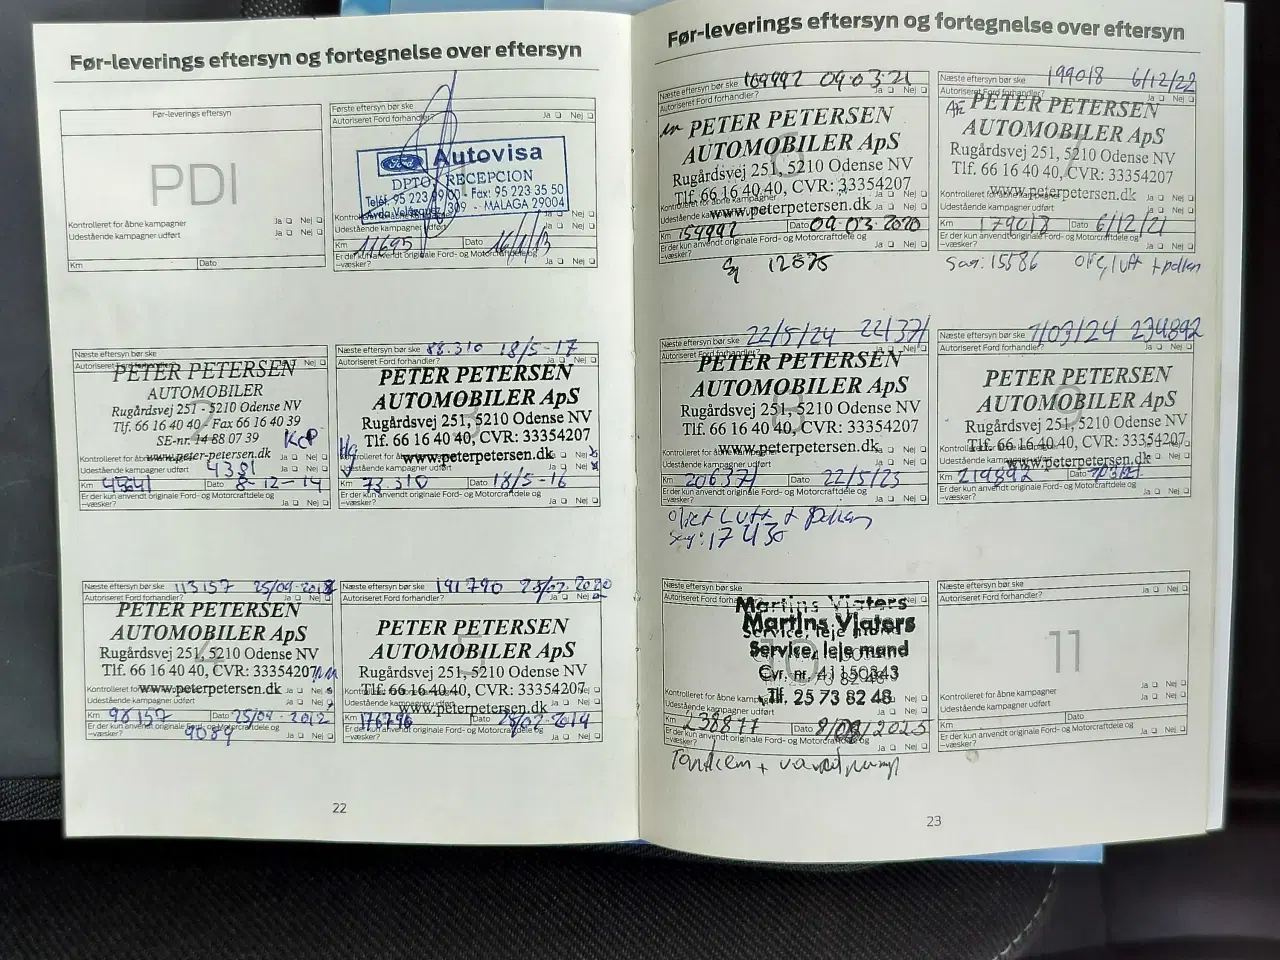 Før-leverings eftersyn og fortegnelse over eftersyn
Før-leverings eftersyn
PDI
Kontrolleret for åbne kampagner
Udestående kampagner udført
Ja Nej
Ja Nej
Km Dato
Første eftersyn bør ske
Autoriseret Ford forhandler? Ja Nej
Ford Autovisa
DPTO. RECEPCION
Fax: 95 223 35 50
309 - MALAGA 29004
Km 11695 Dato
Er der kun anvendt originale Ford- og Motorcraftdele og
–væsker? Ja Nej
Næste eftersyn bør ske
Autoriseret Ford forhandler? Nej
2
PETER PETERSEN
AUTOMOBILER
Rugårdsvej 251 - 5210 Odense NV
Tlf. 66 16 40 40 Fax 66 16 40 39
SE-nr. 14 88 07 39
www.peter-petersen.dk
Udestående kampagner udført 4381
Km Dato 8-12-14
Er der kun anvendt originale Ford- og Motorcraftdele og
–væsker? Ja Nej
Næste eftersyn bør ske 88.310 18/5-17
Autoriseret Ford forhandler?
3
PETER PETERSEN
AUTOMOBILER ApS
Rugårdsvej 251, 5210 Odense NV
Tlf. 66 16 40 40, CVR: 33354207
www.peterpetersen.dk
Udestående kampagner udført
Km 73.310 Dato 18/5-16
Er der kun anvendt originale Ford- og Motorcraftdele og
–væsker? Ja Nej
Næste eftersyn bør ske 113157
Autoriseret Ford forhandler? Ja Nej
4
PETER PETERSEN
AUTOMOBILER ApS
Rugårdsvej 251, 5210 Odense NV
Tlf. 66 16 40 40, CVR: 33354207
www.peterpetersen.dk
Udestående kampagner udført
Km 98157 Dato
Er der kun anvendt originale Ford- og Motorcraftdele og
–væsker? 9089 Ja Nej
Næste eftersyn bør ske 191790
Autoriseret Ford forhandler? Ja Nej
5
PETER PETERSEN
AUTOMOBILER ApS
Rugårdsvej 251, 5210 Odense NV
Tlf. 66 16 40 40, CVR: 33354207
www.peterpetersen.dk
Udestående kampagner udført
Km Dato
Er der kun anvendt originale Ford- og Motorcraftdele og
–væsker? Ja Nej
22
Før-leverings eftersyn og fortegnelse over eftersyn
Næste eftersyn bør ske 169992 09.03.21
Autoriseret Ford forhandler? Ja Nej
6
PETER PETERSEN
AUTOMOBILER ApS
Rugårdsvej 251, 5210 Odense NV
Tlf. 66 16 40 40, CVR: 33354207
www.peterpetersen.dk
Km 154992 Dato 09.03.2020
Er der kun anvendt originale Ford- og Motorcraftdele og
–væsker? Ja Nej
Næste eftersyn bør ske 199018 6/12/22
Autoriseret Ford forhandler? Ja Nej
7
PETER PETERSEN
AUTOMOBILER ApS
Rugårdsvej 251, 5210 Odense NV
Tlf. 66 16 40 40, CVR: 33354207
www.peterpetersen.dk
Udestående kampagner udført
Km 179018 Dato 6/12/21
Er der kun anvendt originale Ford- og Motorcraftdele og
–væsker? Ja Nej
Sag: 15586 Olie, luft + pollen
Næste eftersyn bør ske 22/5/24
Autoriseret Ford forhandler? Ja Nej
8
PETER PETERSEN
AUTOMOBILER ApS
Rugårdsvej 251, 5210 Odense NV
Tlf. 66 16 40 40, CVR: 33354207
www.peterpetersen.dk
Udestående kampagner udført
Km 206371 Dato 22/5/23
Er der kun anvendt originale Ford- og Motorcraftdele og
–væsker? Ja Nej
Olie + Luft + Pollen
Sag: 17430
Næste eftersyn bør ske 234892
Autoriseret Ford forhandler? Ja Nej
9
PETER PETERSEN
AUTOMOBILER ApS
Rugårdsvej 251, 5210 Odense NV
Tlf. 66 16 40 40, CVR: 33354207
www.peterpetersen.dk
Udestående kampagner udført
Km 219892 Dato
Er der kun anvendt originale Ford- og Motorcraftdele og
–væsker? Ja Nej
Næste eftersyn bør ske
Autoriseret Ford forhandler? Nej
10
Martins Viaters
Service, leje mand
Cvr. nr. 41150343
Tlf. 25 73 82 48
Kontrolleret for åbne kampagner
Udestående kampagner udført
Km 238877 Dato
Er der kun anvendt originale Ford- og Motorcraftdele og
–væsker? Ja Nej
Tandrem + vandpump
Næste eftersyn bør ske
Autoriseret Ford forhandler? Ja Nej
11
Kontrolleret for åbne kampagner Ja Nej
Udestående kampagner udført Ja Nej
Km Dato
Er der kun anvendt originale Ford- og Motorcraftdele og
–væsker? Ja Nej
23